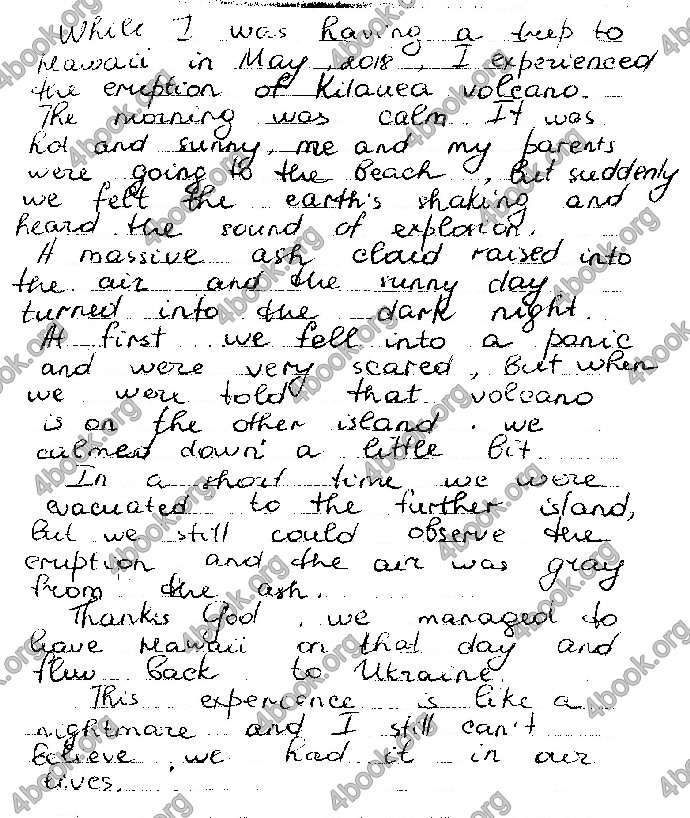 While I was having a treep to
Hawaii in May, 2018, I experienced
the eruption of Kilauea volcano.
The morning was calm. It was
hot and sunny, me and my parents
were going to the beach, but suddenly
we felt the earth's shaking and
heard the sound of explosion.
A massive ash cloud raised into
the air and the sunny day
turned into the dark night.
At first we fell into a panic
and were very scared, but when
we were told that volcano
is on the other island, we
calmed down a little bit.
In a short time we were
evacuated to the further island,
but we still could observe the
eruption and the air was gray
from the ash.
Thanks God, we managed to
leave Hawaii on that day and
flew back to Ukraine.
This experience is like a
nightmare and I still can't
believe we had it in our
lives.
4book.org